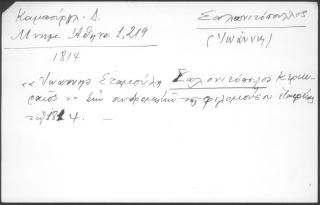 Καμπούρογλ. Δ.
Μνημ. Αθηνα 1,219
1814
Σαλονιτόπουλλος
(Ἰωάννης)
« Ἰωάννης Σταμούλη Σαλονιτόπουλος Κερκυ-
ραῖος » ἐκ συνδρομητῶν τῆς φιλομούσου Ἑταιρείας
τοῦ 1814. —